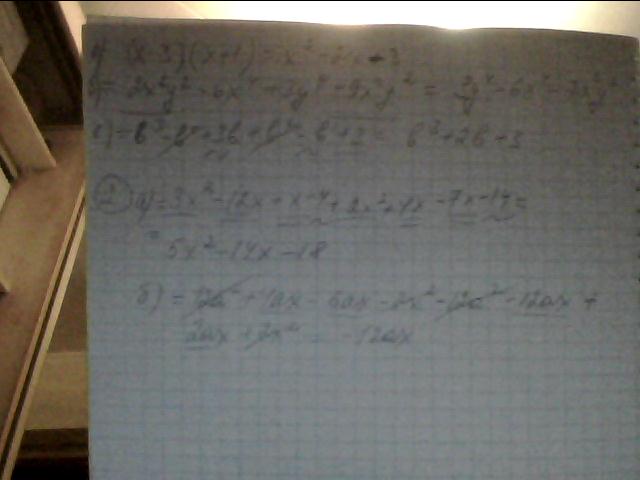 (x-3)(x+1) = x² - 2x - 3
= 2x²y² - 6x⁴ + 3y⁴ - 9x²y² = 3y⁴ - 6x⁴ - 7x²y²
c) = b³ - b² + 3b + b² - b + 3 = b³ + 2b + 3
2 а) = 3x² - 12x + x - 4 + 2x² + 4x - 7x - 14 =
= 5x² - 14x - 18
б) = 12a² + 4ax - 6ax - 2x² - 12a² - 12ax +
2ax + 2x² = -12ax